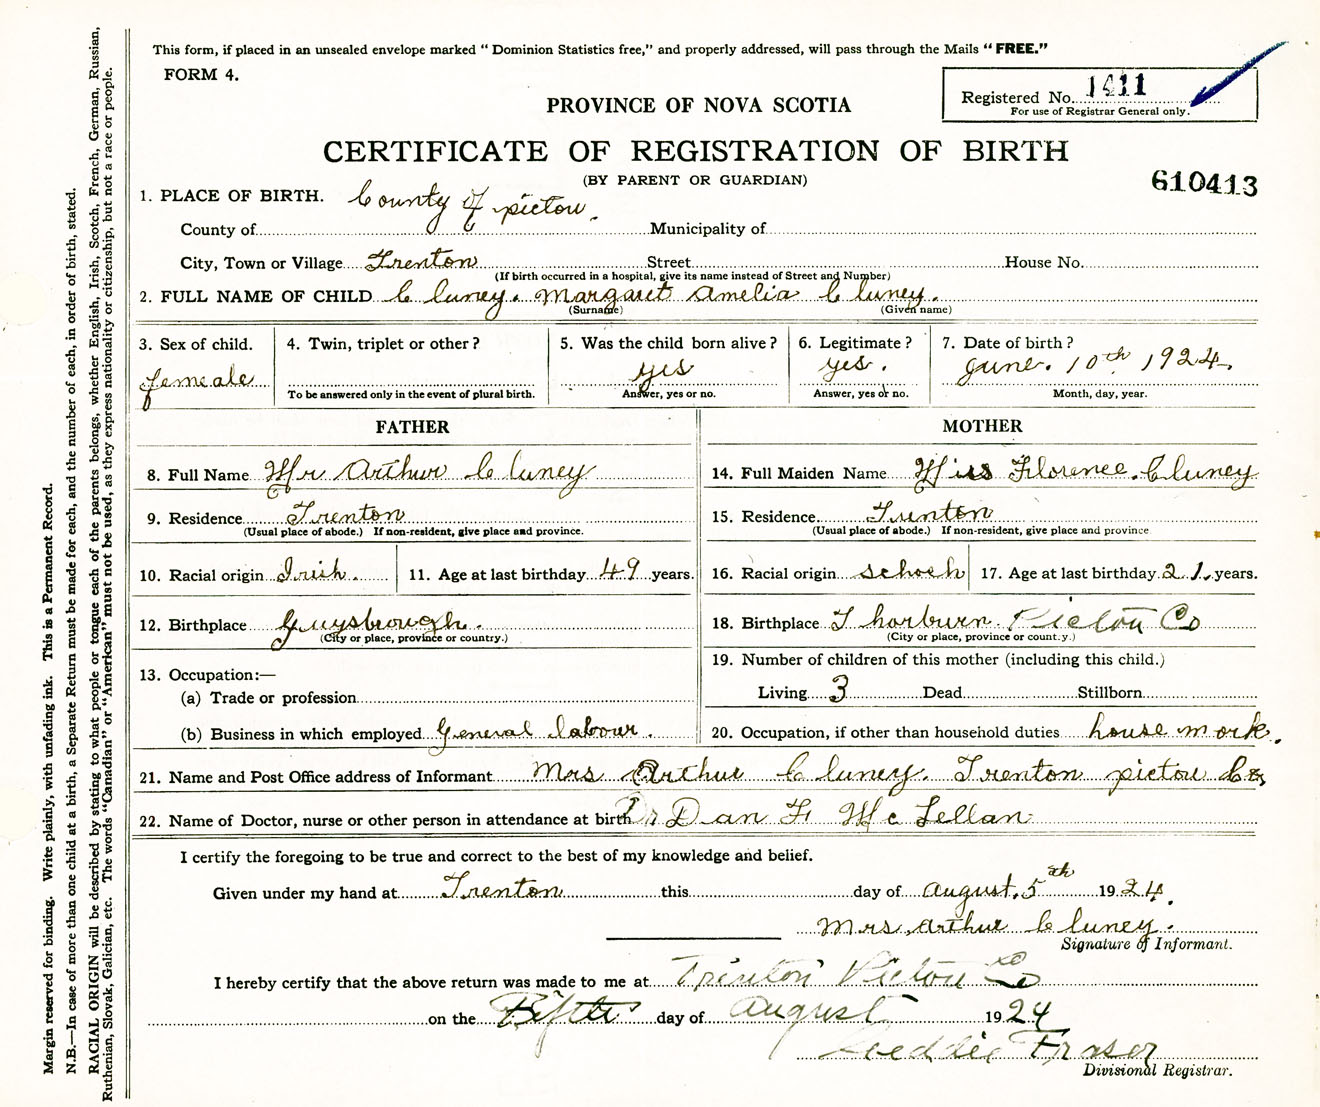 This form, if placed in an unsealed envelope marked “ Dominion Statistics free,” and properly addressed, will pass through the Mails “ FREE.”
FORM 4.
Registered No. 1411
For use of Registrar General only.
PROVINCE OF NOVA SCOTIA
CERTIFICATE OF REGISTRATION OF BIRTH
(BY PARENT OR GUARDIAN)
610413
1. PLACE OF BIRTH. County of pictou.
County of Municipality of
City, Town or Village Trenton Street House No.
(If birth occurred in a hospital, give its name instead of Street and Number)
2. FULL NAME OF CHILD Cluney. Margaret Amelia Cluney.
(Surname) (Given name)
3. Sex of child. 4. Twin, triplet or other ? 5. Was the child born alive ? 6. Legitimate ? 7. Date of birth ?
femeale yes yes. June. 10th 1924.
To be answered only in the event of plural birth. Answer, yes or no. Answer, yes or no. Month, day, year.
FATHER MOTHER
8. Full Name Mr Arthur Cluney 14. Full Maiden Name Miss Florence. Cluney
9. Residence Trenton 15. Residence Trenton
(Usual place of abode.) If non-resident, give place and province. (Usual place of abode.) If non-resident, give place and province.
10. Racial origin Irish. 11. Age at last birthday 49 years. 16. Racial origin 17. Age at last birthday 21. years.
12. Birthplace Guysbrough. 18. Birthplace Thorburn. Pictou Co
(City or place, province or country.) (City or place, province or count.y.)
13. Occupation:— 19. Number of children of this mother (including this child.)
(a) Trade or profession Living 3 Dead Stillborn
(b) Business in which employed General labour. 20. Occupation, if other than household duties house work.
21. Name and Post Office address of Informant Mrs Arthur Cluney. Trenton pictou Co
22. Name of Doctor, nurse or other person in attendance at birth Dr Dan F McLellan
I certify the foregoing to be true and correct to the best of my knowledge and belief.
Given under my hand at Trenton this day of August. 5th 1924.
Mrs. Arthur Cluney.
Signature of Informant.
I hereby certify that the above return was made to me at Trenton Pictou Co
on the Fifth day of August 1924
Fraser
Divisional Registrar.
Margin reserved for binding. Write plainly, with unfading ink. This is a Permanent Record.
N.B.—In case of more than one child at a birth, a Separate Return must be made for each, and the number of each, in order of birth, stated.
RACIAL ORIGIN will be described by stating to what people or tongue each of the parents belongs, whether English, Irish, Scotch, French, German, Russian,
Ruthenian, Slovak, Galician, etc. The words “Canadian” or “American” must not be used, as they express nationality or citizenship, but not a race or people.